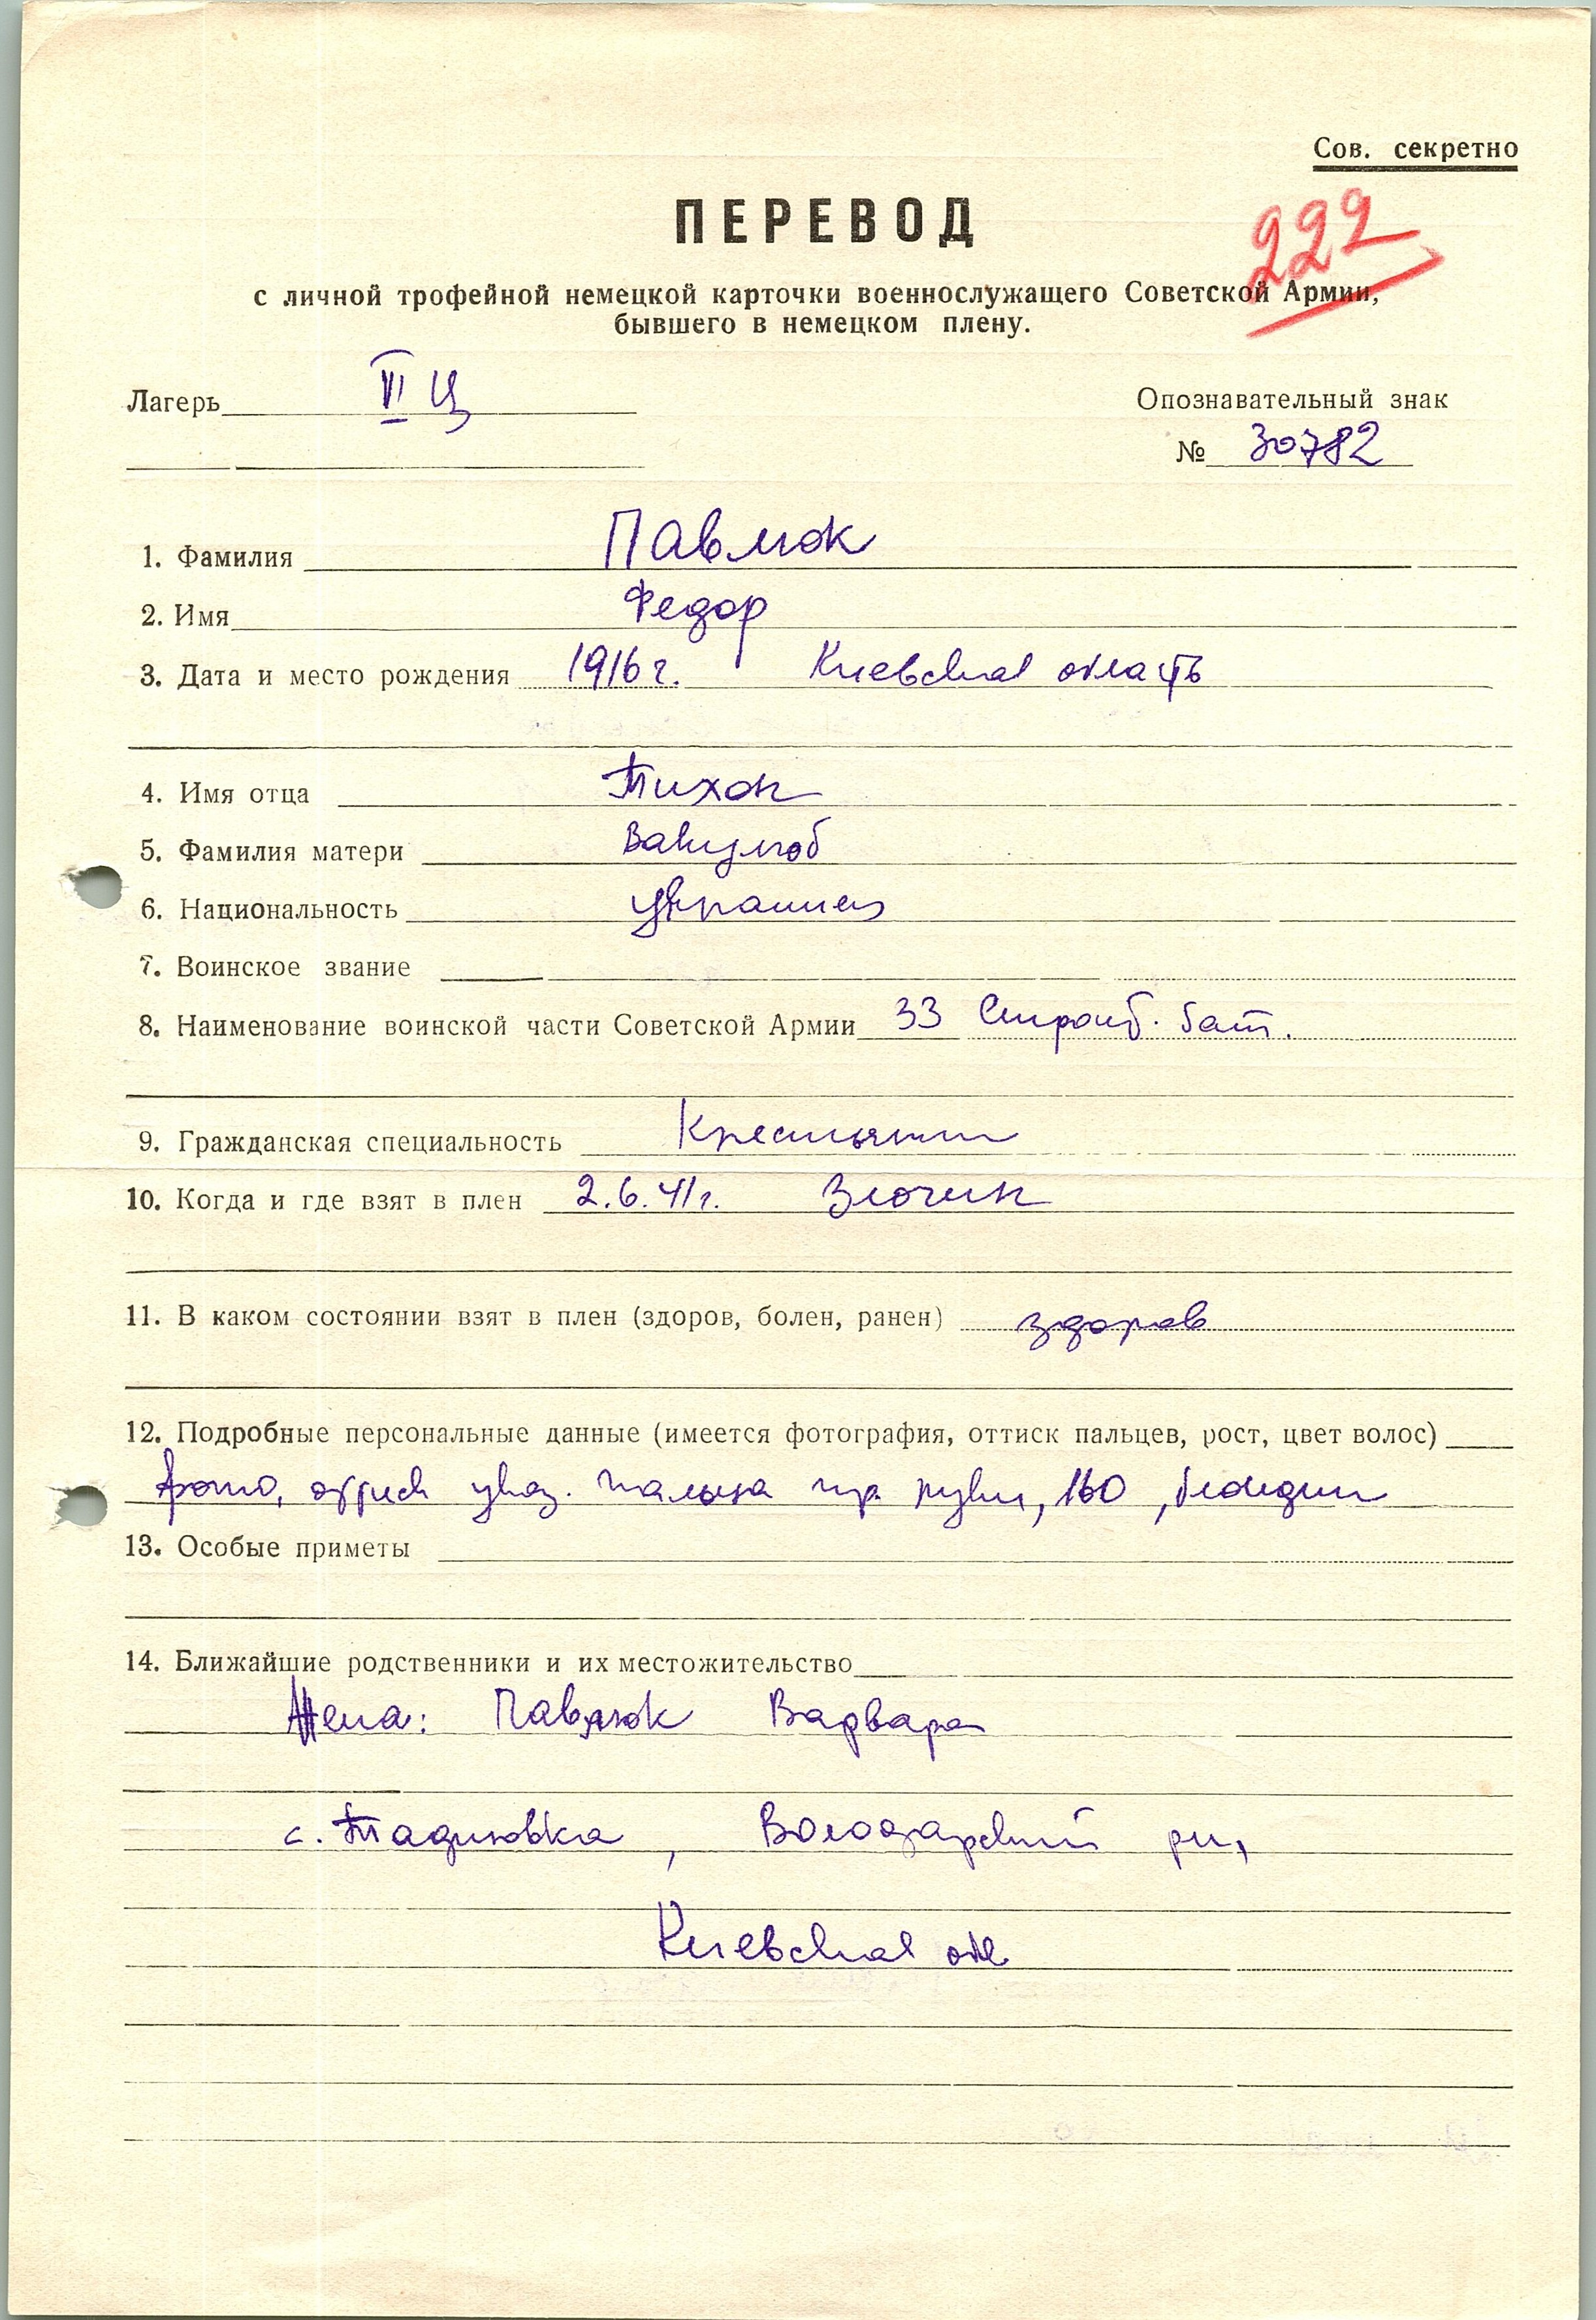 Сов. секретно
ПЕРЕВОД
222
с личной трофейной немецкой карточки военнослужащего Советской Армии,
бывшего в немецком плену.
Лагерь VI Ц
Опознавательный знак
№ 30782
1. Фамилия Павлюк
2. Имя Федор
3. Дата и место рождения 1916 г. Киевская область
4. Имя отца Тихон
5. Фамилия матери
6. Национальность украинец
7. Воинское звание
8. Наименование воинской части Советской Армии 33 Строит. бат.
9. Гражданская специальность Крестьянин
10. Когда и где взят в плен 2.6.41 г. Злочин
11. В каком состоянии взят в плен (здоров, болен, ранен) здоров
12. Подробные персональные данные (имеется фотография, оттиск пальцев, рост, цвет волос)
фото, оттиск указ. пальца пр. руки, 160, блондин
13. Особые приметы
14. Ближайшие родственники и их местожительство
Жена: Павлюк Варвара
с. Тадиовка, Володарский рн,
Киевская обл